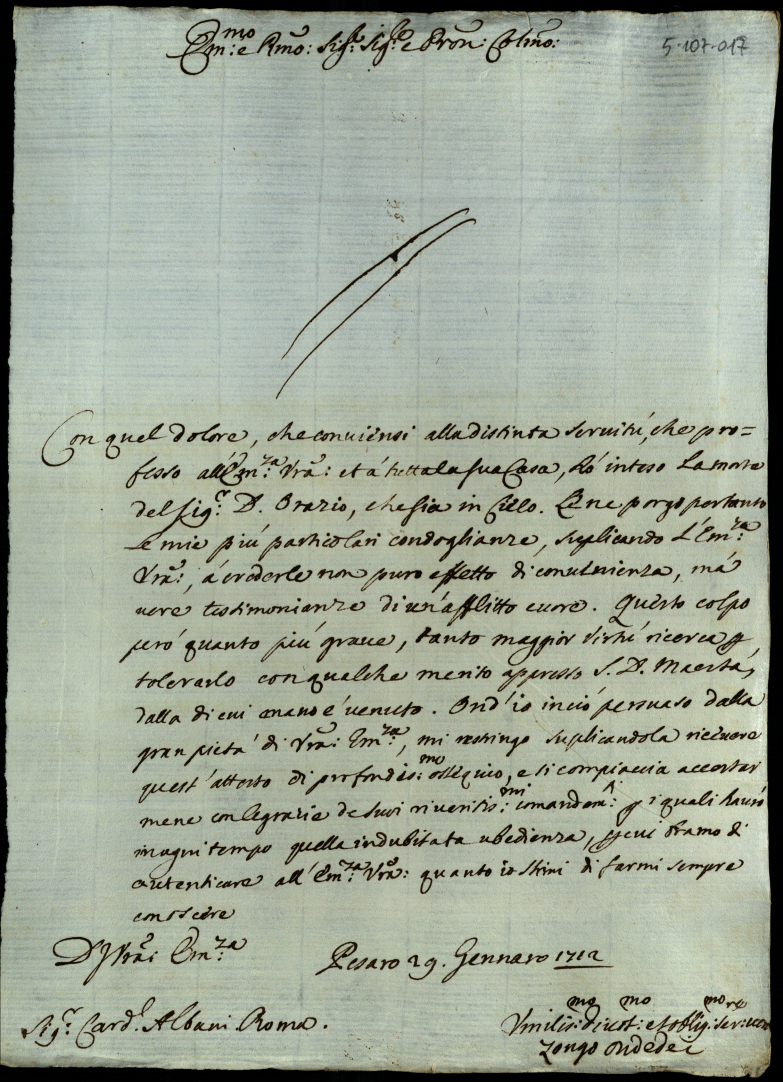 Em:mo e Rmo: Sigr: Sigr: e Pron: Colmo:
5-107-017
Con quel dolore, che conviensi alla distinta servitú, che pro=
fesso all'Em:za Vra: et á tutta la sua Casa, hó inteso la morte
del Sig:r D. Orazio, che sia in Cielo. Le ne porgo pertanto
le mie piú particolari condoglianze, suplicando l'Em:za
Vra:, á crederle non puro effetto di convenienza, má
vere testimonianze di un'afflitto cuore. Questo colpo
peró quanto piú grave, tanto maggior virtú ricerca p
tolerarlo con qualche merito appresso S. D. Maestá,
dalla di cui mano é venuto. Ond'io in ció persuaso dalla
gran pietá di Vra: Em:za, mi restringo suplicandola ricevere
quest'attesto di profondis:mo ossequio, e si compiaccia accertar
mene con le grazie de suoi riveritis:mi comandam:i p i quali havró
in ogni tempo quella indubitata ubedienza, p cui bramo di
autenticare all'Em:za Vra: quanto io stimi di farmi sempre
conoscere
D'Vra: Em:za
Pesaro 29. Gennaro 1712
Sig:r Card:l Albani Roma.
Vmilis:mo divot:mo et oblig:mo ser:re vero
Zongo Ondedei